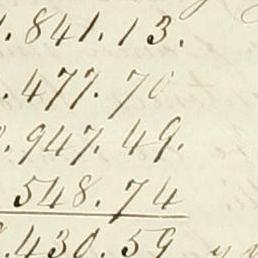 .841.13.
.477.70
.947.49.
548.74
.430.59